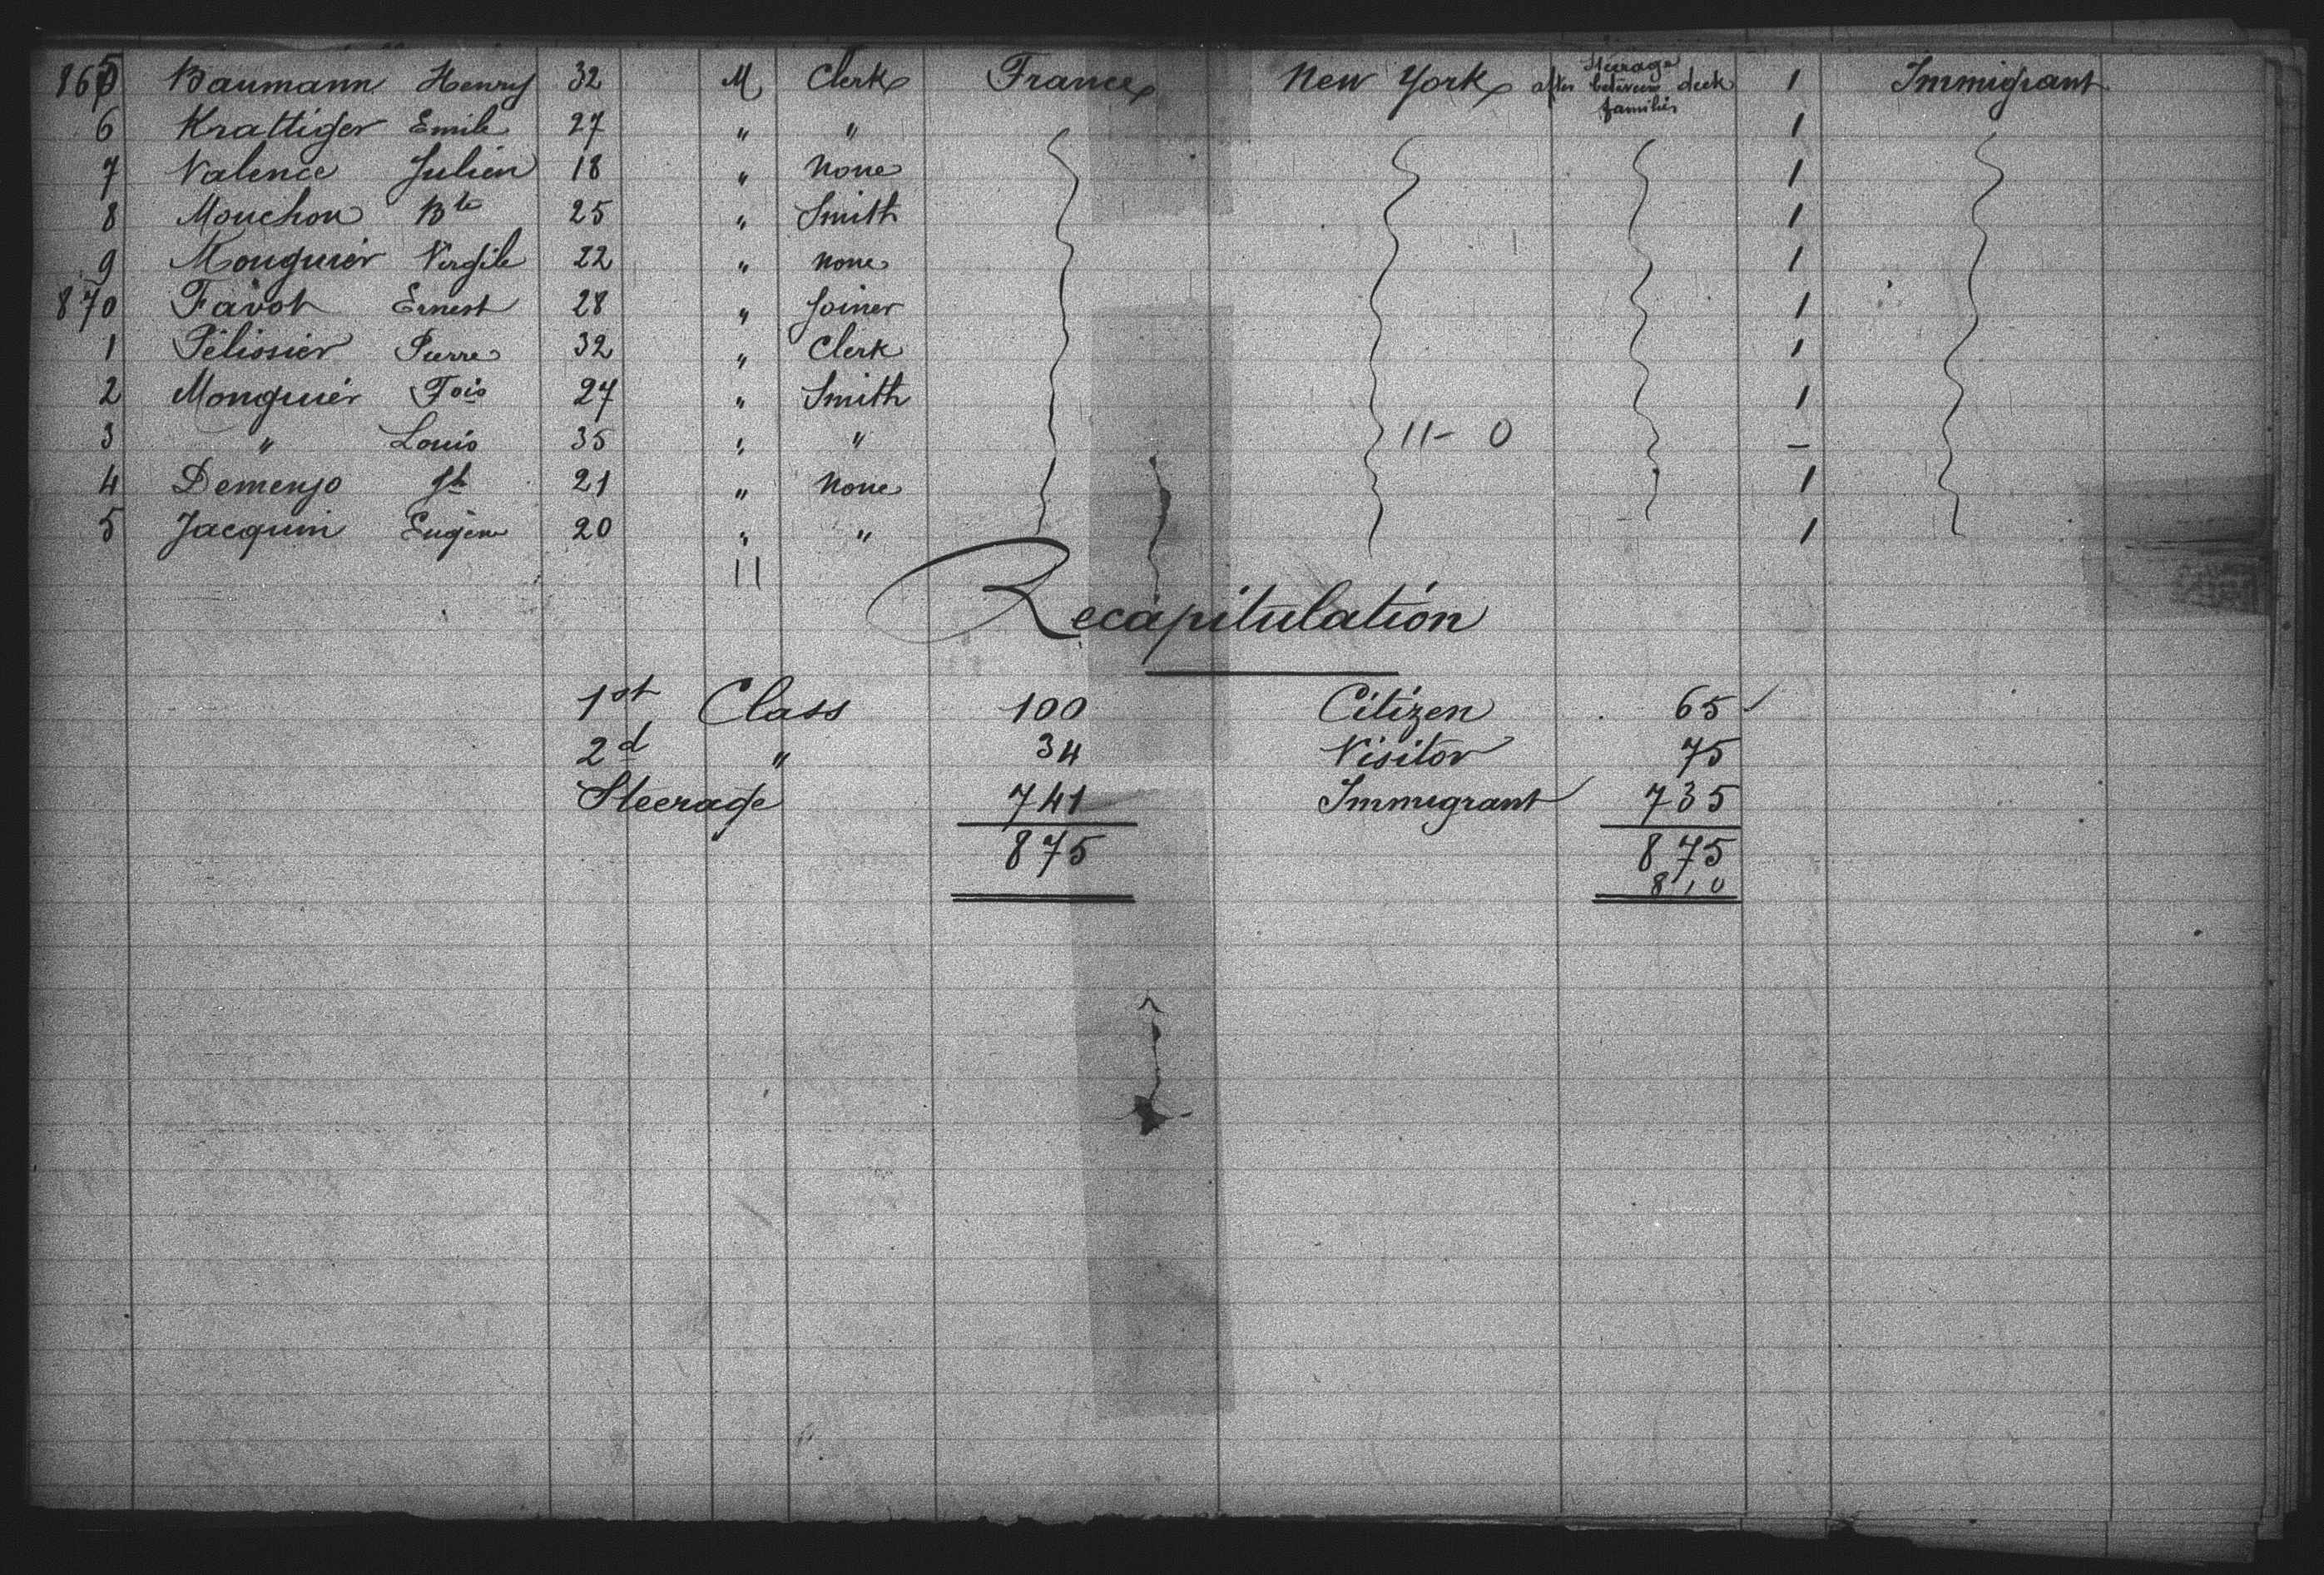 865 Baumann Henry 32 M Clerk France New York after Steerage between deck families 1 Immigrant
6 Krattiger Emile 27 " " 1
7 Valence Julien 18 " None 1
8 Mouchon Bte 25 " Smith 1
9 Monguier Virgile 22 " none 1
870 Favot Ernest 28 " Joiner 1
1 Pélissier Pierre 32 " Clerk 1
2 Monguier Fois 27 " Smith 1
3 " Louis 35 " " 11 - 0 –
4 Demenjo 21 " None 1
5 Jacquin Eugène 20 " " 1
11
Recapitulation
1st Class 100 Citizen 65 ✓
2d " 34 Visitor 75
Steerage 741 Immigrant 735
875 875
810